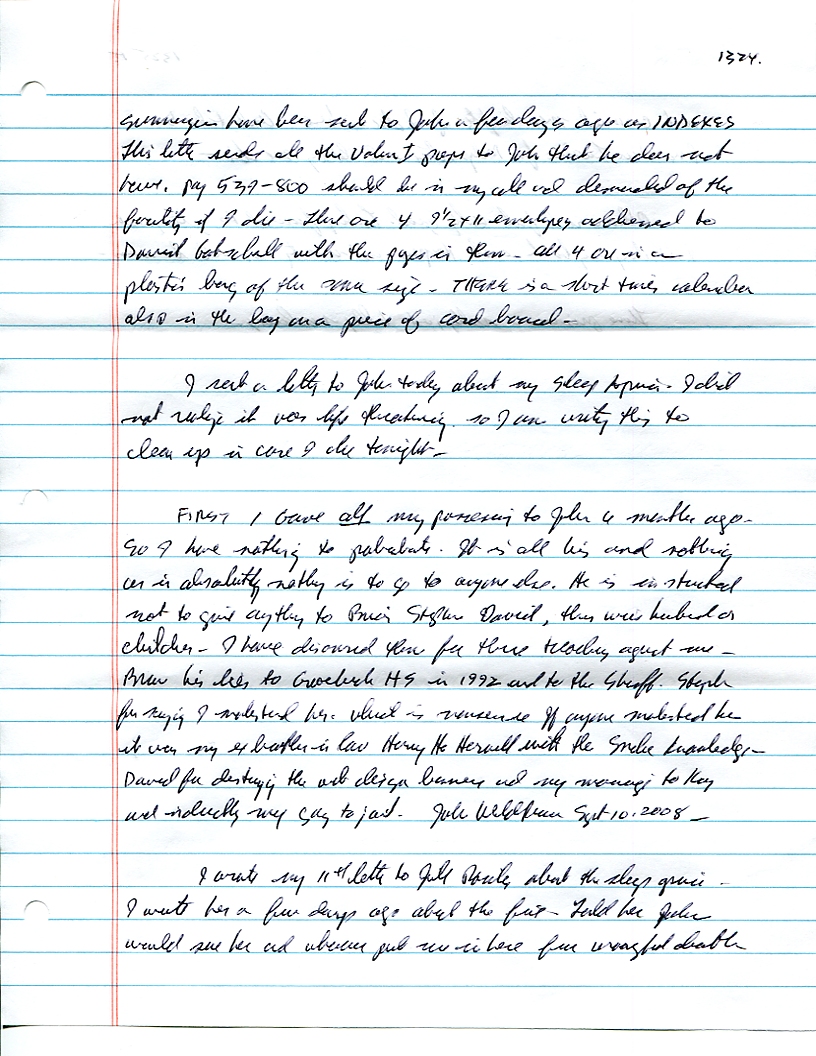 1324.
have been sent to John a few days ago as INDEXES
This letter sends all the Volume I pages to John that he does not
have. pg 539-800 should be in my cell and demanded of the
facility if I die - There are 4 9 1/2 x 11 envelopes addressed to
David with the pages in them - all 4 are in a
plastic bag of the same size - THERE is a short times calendar
also in the bag on a piece of card board -
I sent a letter to John today about my Sleep Apnia - I did
not realize it was life threatening. so I am writing this to
clean up in case I die tonight -
FIRST I Gave all my to John 4 months ago -
So I have nothing to It is all his and nothing
as in absolutely nothing is to go to anyone else. He is instructed
not to give anything to Brian Steph David, their husband or
children - I have disowned them for there against me -
Brian his lies to HS in 1992 and to the Sheriff. Steph
for saying I molested her. what is nonsense If anyone molested her
it was my ex brother-in law with the knowledge -
David for destroying the web design business and my marriage to Kay
and indirectly my going to jail. Sept 10. 2008 -
I wrote my 11th letter to about the sleep -
I wrote her a few days ago about the - Told her John
would sue her and put me in here for wrongful death